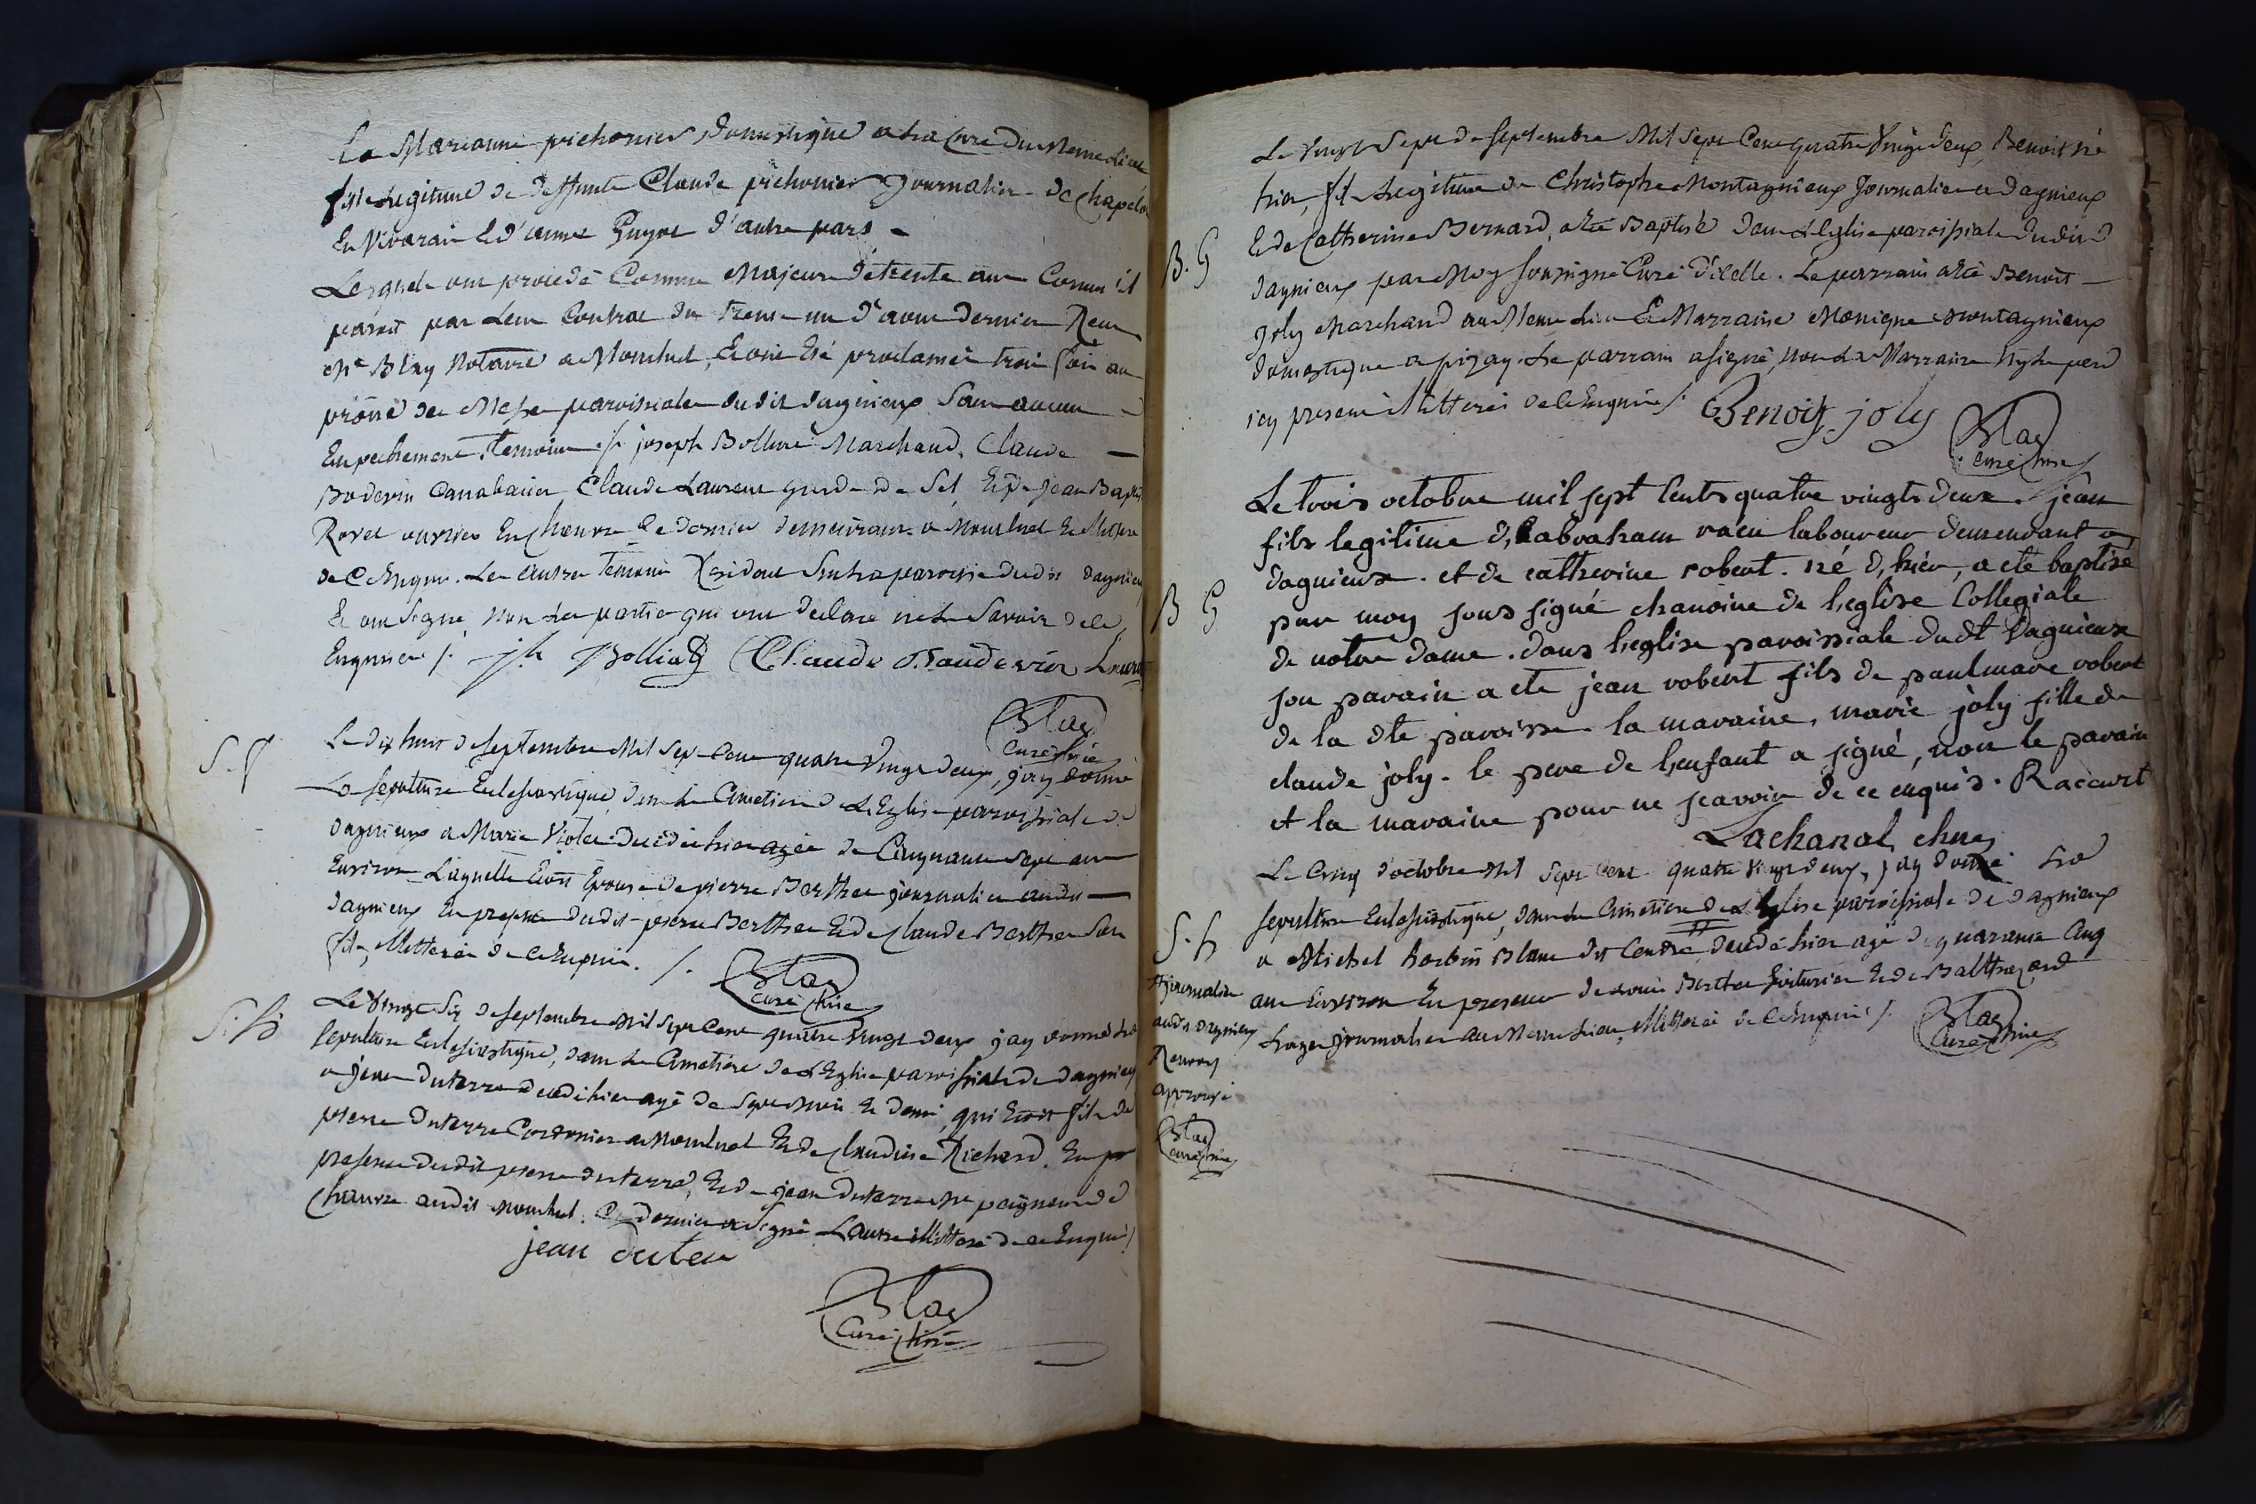 Marianne pichonier, domestique a la Cure du meme Lieu
fille Legitime de deffunts Claude pichonier Journalier de Chapelo
En Vivarais Et d'anne Guyot d'autre part
Lesquels ont procedé Comme Majeurs de trente ans Comme il
paroit par Leur Contrat du trente un d'aout dernier Reçu
Me Blay Notaire a Montluel, Et ont Eté proclamés trois fois au
prône des Messes paroissiales dudit dagnieux Sans aucun
Empechement. temoins joseph Marchand, Claude
Claude Laurent garde de Sel, Et Sr Jean Bapte
ouvrier En chanvre Ce dernier demeurant a Montluel Et illitteré
de Ce Enquis. Les autres temoins Residant Sur la paroisse dudit dagnieux
Et ont Signé, Non Les parties qui ont declaré ne Le Savoir de Ce
Enquises /. jh Bolliat Claude Laurent
Blay
Curé
S. F
Le dix huit de Septembre Mil Sept Cent quatre Vingt deux, j'ay donné
La Sepulture Eclesiastique dans Le Cimetiere de L'Eglise paroissiale de
dagnieux a Marie Violet decedée hier agée de Cinquante Sept ans
Environ Laquelle Etoit Epouse de pierre Berthet journalier audit
dagnieux En presence dudit pierre Berthet Et de Claude Berthet Son
fils, illitterés de Ce Enquis. /.
Blay
Curé
S. G
Le Vingt Six de Septembre Mil Sept Cent quatre Vingt deux jay donné La
Sepulture Eclesiastique, dans Le Cimetiere de L'Eglise paroissiale de dagnieux
a jean duterre decedé hier agé de Sept Mois Et demi, qui Etoit fils de
pierre duterre Cordonier a Montluel Et de Claudine Richard. En
presence dudit pierre duterre, Et de jean duterre Me peigneur de
Chanvre audit Montluel. Ce dernier a Signé L'autre illitteré de Ce Enquis /
jean duter
Blay
Curé
Le Vingt Sept de Septembre Mil Sept Cent quatre Vingt deux, Benoit né
hier, fils Legitime de Christophe Montagnieux Journalier a dagnieux
B. G
Et de Catherine Bernard, a Eté Baptisé dans L'Eglise paroissiale dudit
dagnieux par Moy Soussigné Curé d'icelle. Le parrain a Eté Benoit
Joly Marchand au Meme Lieu Et Marraine Monique Montagnieux
domestique a pizay. Le parrain a signé, Non La Marraine Ny Le pere
icy present illitterés de Ce Enquis /. Benoit joly
Blay
curé
Le trois octobre mil sept cents quatre vingts deux. jean
fils legitime d'abraham racu laboureur demeurant a
dagnieux. et de catherine robert. né d'hier, a eté baptisé
B G
par moy sous signé chanoine de l'eglise Collegiale
de notre dame. dans l'eglise paroissiale dudt dagnieux
son parain a eté jean robert fils de paul marc robert
de la dte paroisse. la maraine, marie joly fille de
claude joly. le pere de l'enfant a signé, non le parain
et la maraine pour ne scavoir de ce enquis. Racourt
Lachanal chne
Le Cinq d'octobre Mil Sept Cent quatre Vingt deux, j'ay donné La
Sepulture Eclesiastique, dans Le Cimetiere de L'Eglise paroissiale de dagnieux
S. G
a Michel Blanc dit decedé hier agé de quarante Cinq
ans Environ En presence de Berthet Voiturier Et de Balthazard
journalier au Meme Lieu, illitterés de Ce Enquis /.
Blay
Curé
journalier
audit dagnieux
Renvoy
approuvé
Blay
curé